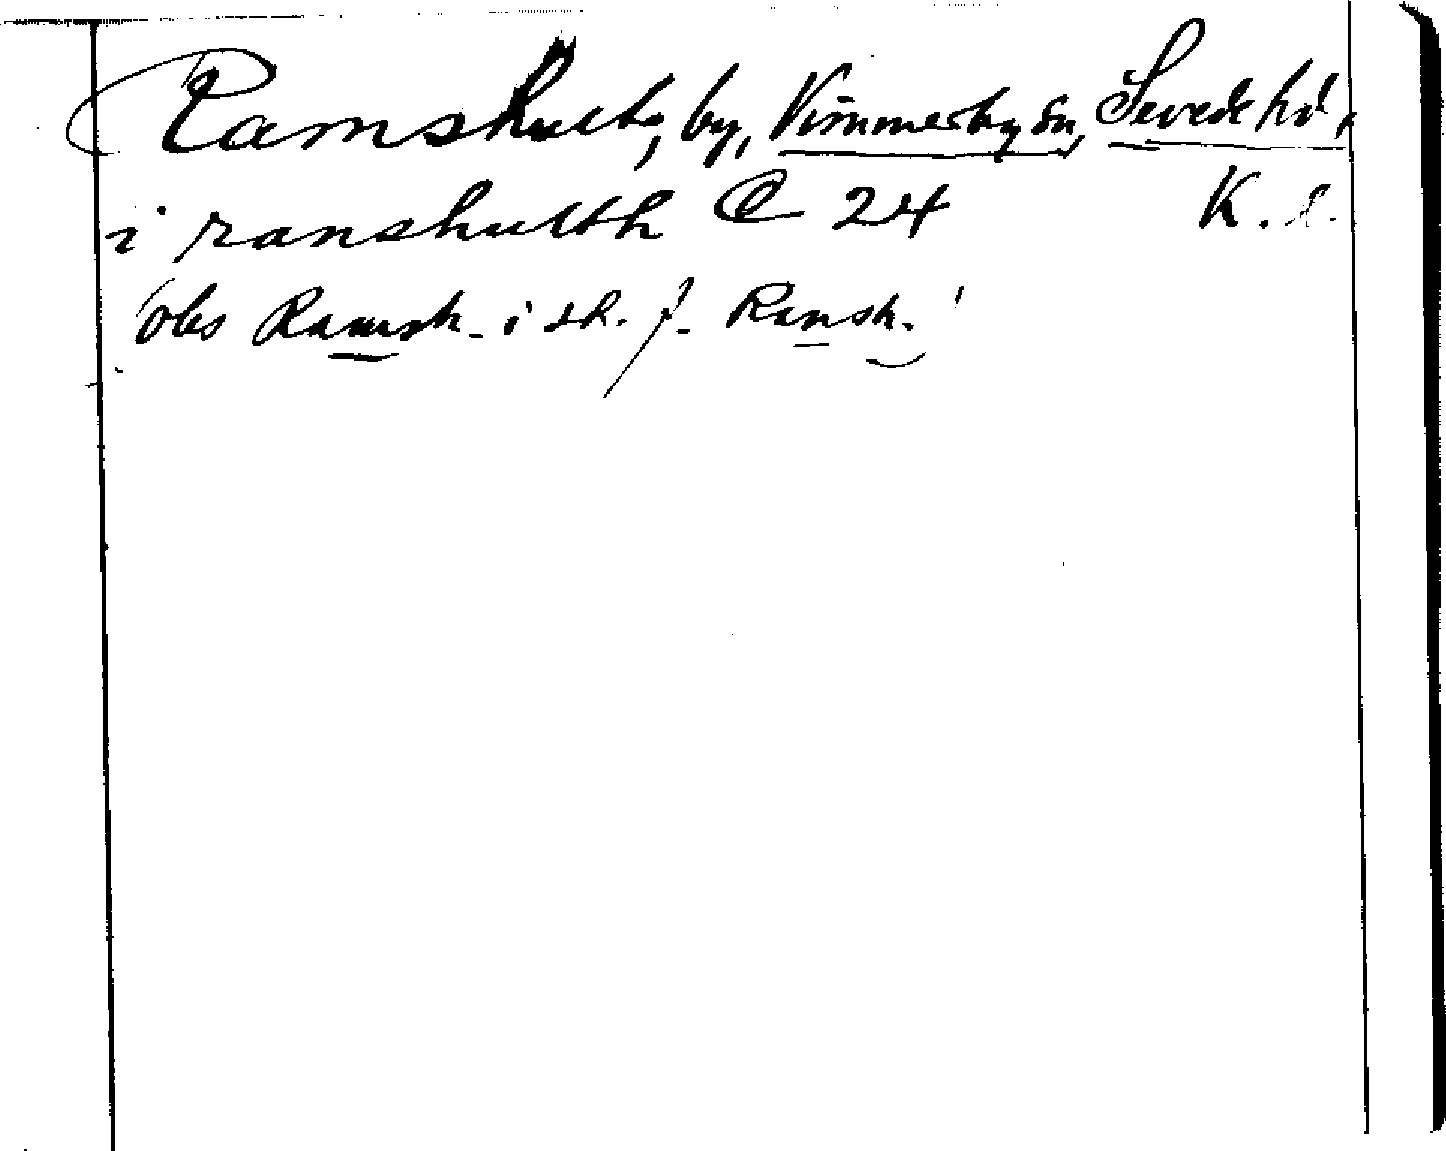 Ramshult, by, Vimmerby sn, Sevede hd,
i ranshulth C 24 K. l.
obs Ramsh. i st. f. Ransh.!